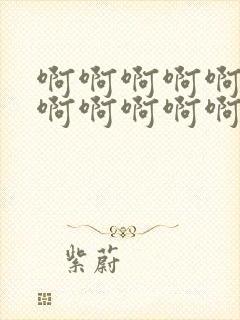 啊啊啊啊啊
啊啊啊啊啊
紫蔚